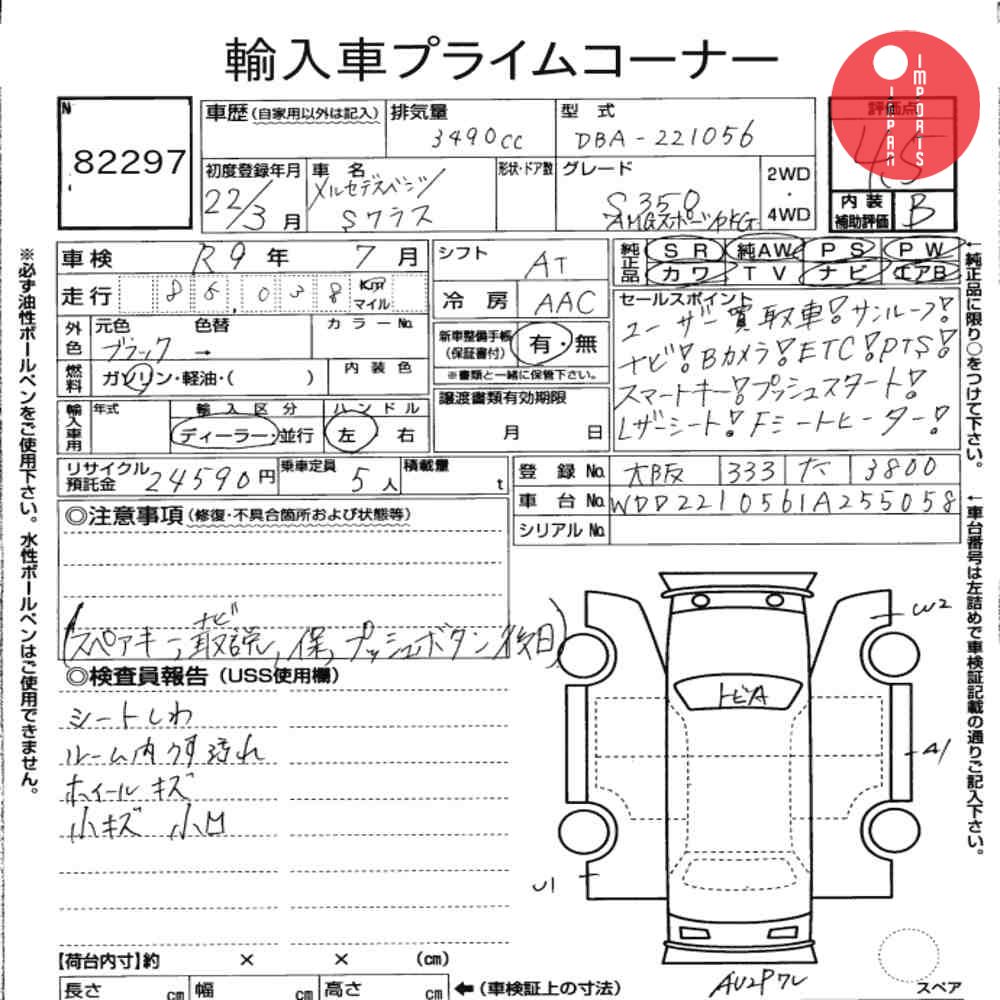 輸入車プライムコーナー
IMPORTS
JAPAN
N
82297
車歴（自家用以外は記入）
排気量
3490cc
型 式
DBA-221056
評価点
4.5
初度登録年月
22/3月
車 名
メルセデスベンツ
Sクラス
形状・ドア数
グレード
S350
AMGスポーツPKG
2WD
・
4WD
内 装
補助評価
B
車検
R9年 7月
シフト
AT
純正品
SR
純AW
PS
PW
カワ
TV
ナビ
エアB
走行
86,038
Km
マイル
冷 房
AAC
セールスポイント
ユーザー買取車!サンルーフ!
ナビ!Bカメラ!ETC!PTS!
スマートキー!プッシュスタート!
Lザーシート!Fシートヒーター!
外色
元色
色替
ブラック →
カラーNo.
新車整備手帳
（保証書付）
有・無
※書類と一緒に保管下さい。
燃料
ガソリン・軽油・(　　)
内 装 色
輸入車用
年式
輸 入 区 分
ディーラー・並行
ハ ン ド ル
左 右
譲渡書類有効期限
月 日
リサイクル
預託金
24590円
乗車定員
5人
積載量
t
登 録 No.
大阪 333 た 3800
車 台 No.
WDD2210561A255058
シリアル No.
◎注意事項（修復・不具合箇所および状態等）
ナビ
(スペアキー、取説、保、プッシュボタン後日)
◎検査員報告（USS使用欄）
シートしわ
ルーム内ウス汚れ
ホイールキズ
小キズ 小凹
トビA
W2
A1
U1
AU2Pワレ
スペア
【荷台内寸】約 × × (cm)
長さ cm 幅 cm 高さ cm
←（車検証上の寸法）
※必ず油性ボールペンをご使用下さい。水性ボールペンはご使用できません。
←純正品に限り○をつけて下さい。
←車台番号は左詰めで車検証記載の通りご記入下さい。